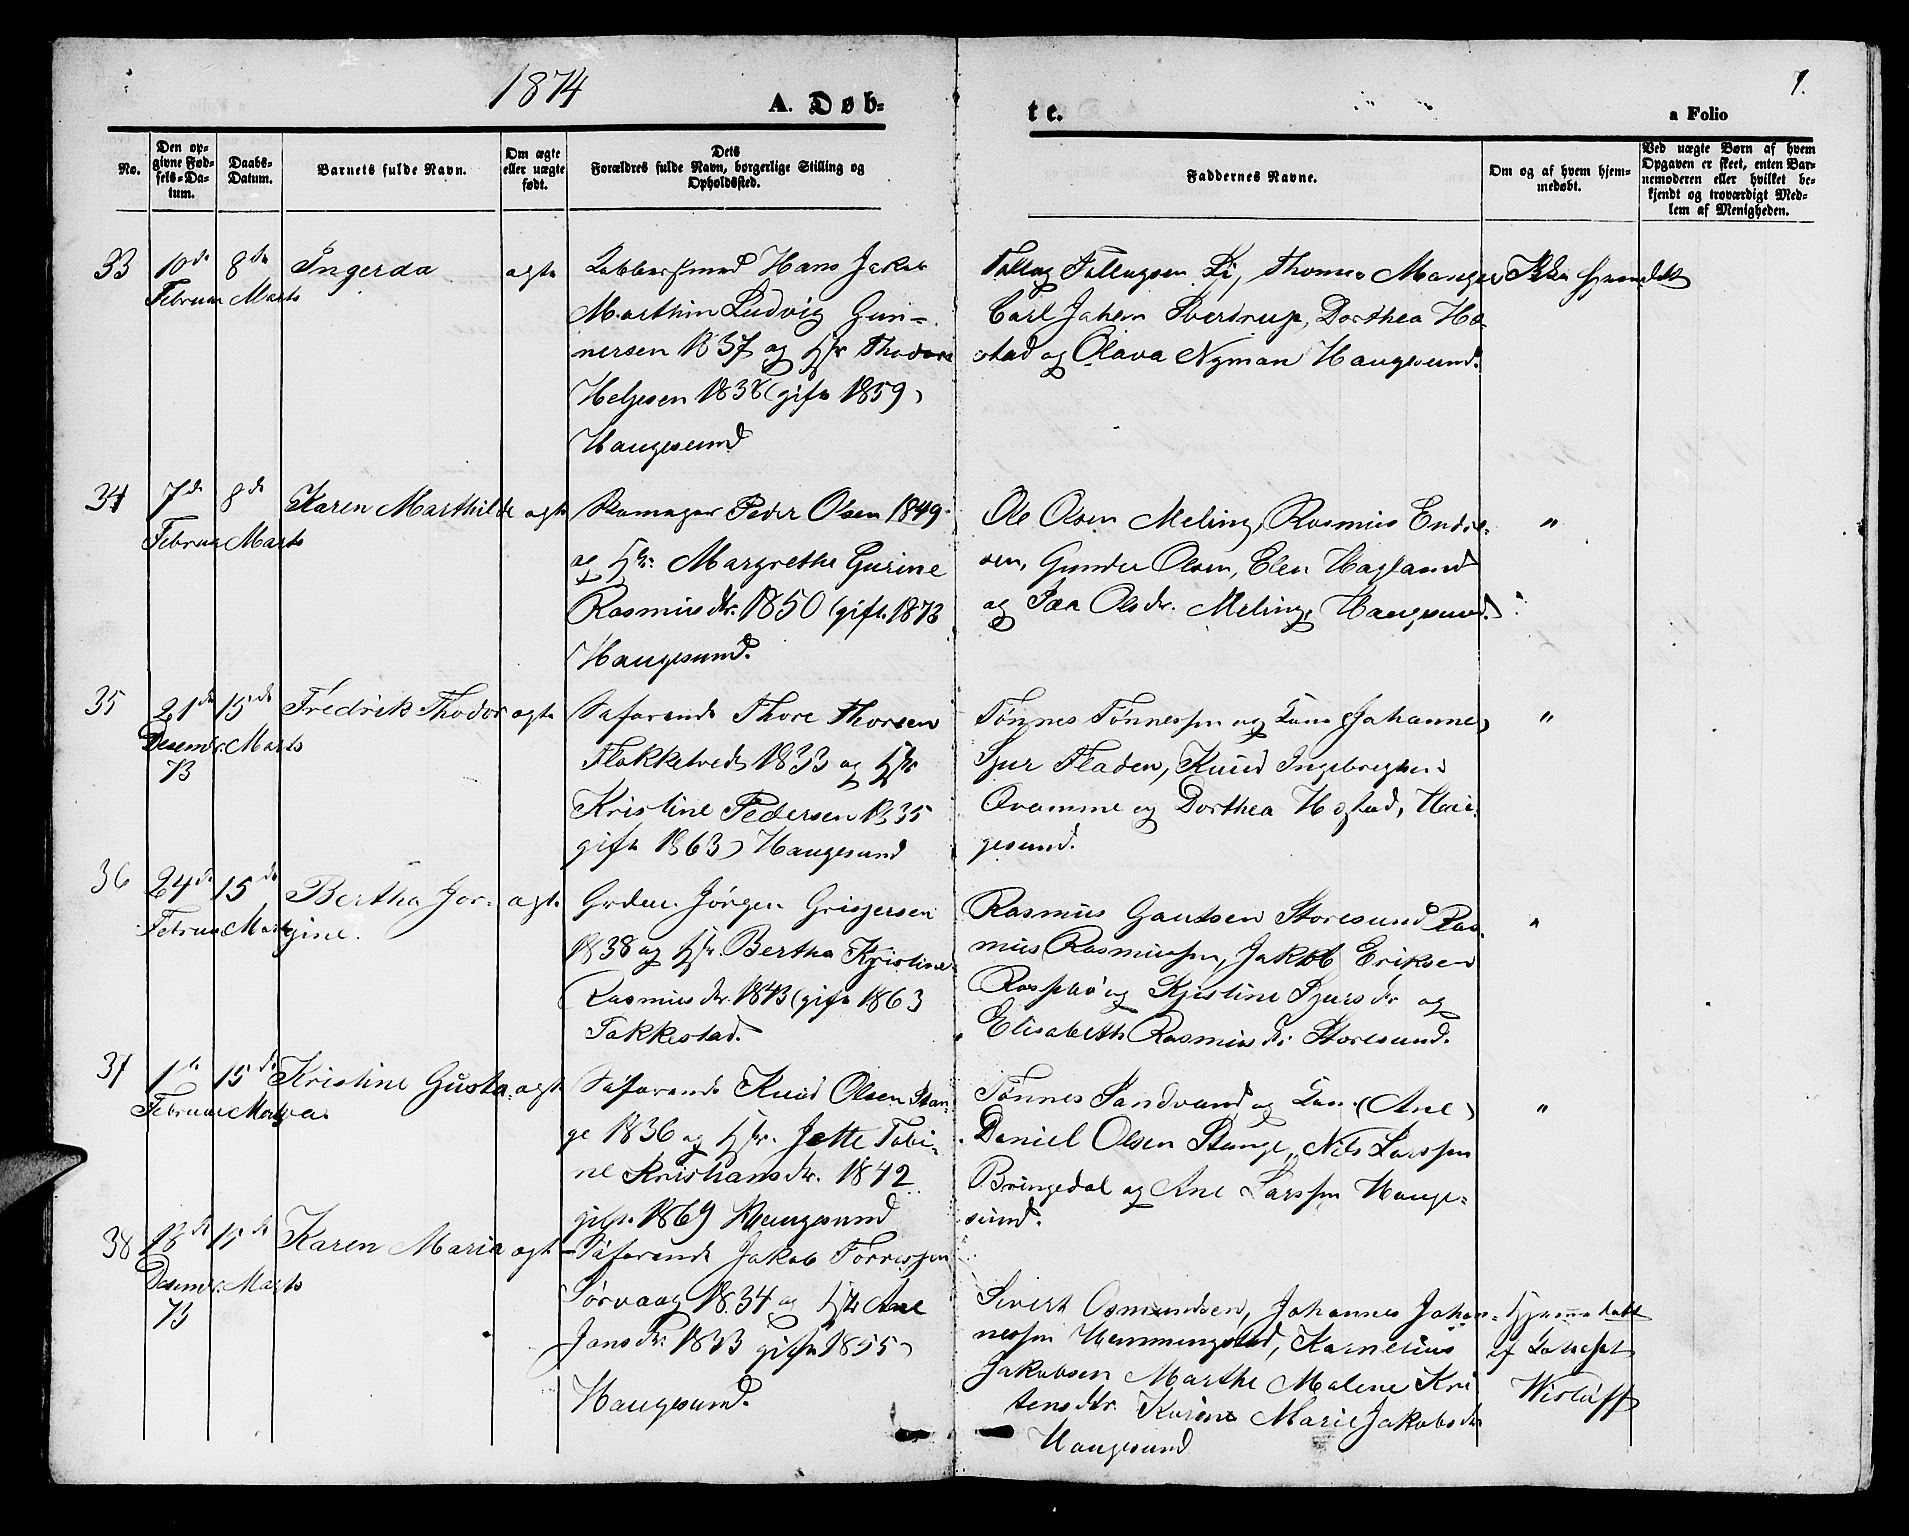 1874
A. Døb-
te.
7.
a Folio
No.
Den op-
givne Fød-
sels-Da-
tum.
Daabs-
Datum.
Barnets fulde Navn.
Om ægte
eller uægte
født.
Dets
Forældres fulde Navn, borgerlige Stilling og
Opholdssted.
Faddernes Navne.
Om og af hvem hjem-
medøbt.
Ved uægte Børn af hvem
Opgaven er skeet, enten Bar-
nemoderen eller hvilket be-
kjendt og troværdigt Med-
lem af Menigheden.
33
10de
Februar
8de
Marts
Ingerda
ægte
Kobbersmed Hans Jakob
Marthin Ludvig Gun-
nersen 1837 og Hstr Thodora
Helgesen 1838 (gifte 1859)
Haugesund
Tollag Tollagsen Li, Thomas Manger
Carl Johen Sverdrup, Dorthea Ho-
stad og Olava Nyman Haugesund.
Ikke hjemdøbt
34
7de
Februar
8de
Marts
Karen Marthilde
ægte
Skomager Peder Olsen 1849
og Hstr. Margrethe Gurine
Rasmusdtr. 1850 (gift. 1873
Haugesund.
Ole Olsen Meling, Rasmus Endre-
sen, Gunder Olsen, Elen Hagland
og Olsdtr. Meling, Haugesund.
"
35
21de
Desembr.
73
15de
Marts
Fredrik Thodor
ægte
Søfarende Thore Thorsen
Flokketvedt 1833 og Hstr
Kristine Pedersen 1835
gifte 1863) Haugesund
Tønnes Tønnessen og Kone (Johanne)
Sjur Fladen, Knud Ingebregtsen
Qvamme og Dorthea Hostad, Hau-
gesund.
"
36
24de
Februar
15de
Marts
Bertha Jor-
gine.
ægte
Grdm. Jørgen Grisjersen
1838 og Hstr. Bertha Kjistine
Rasmusdtr. 1843 (gifte 1863
Takkestad.
Rasmus Gautsen Storesund Ras-
mus Rasmussen, Jakob Eriksen
Rossebø og Kjistine Sjursdtr og
Elisabeth Rasmusdtr Storesund.
"
37
1te
Februar
15de
Marts
Kristine Gusta-
va.
ægte
Søfarende Knud Olsen Stan-
ge 1836 og Hstr. Jette Tobi-
ne Kristiansdtr. 1842
gifte 1869 Haugesund
Tønnes Sandvand og Kone (Ane)
Daniel Olsen Stange, Nils Larssen
Bringedal og Ane Larssen Hauge-
sund.
"
38
18de
Desembr.
73
15de
Marts
Karen Maria
ægte
Søfarende Jakob Torresjen
Sørvaag 1834 og Hstr Ane
Jansdtr. 1833 gifte 1855)
Haugesund.
Sivert Osmundsen, Johannes Johan-
nessen Hemmingstad, Kornelius
Jakobsen Marthe Malene Kri
tensdtr. Karine Marie Jakobsdtr
Haugesund
Hjemmedøbt
af
Wisløff